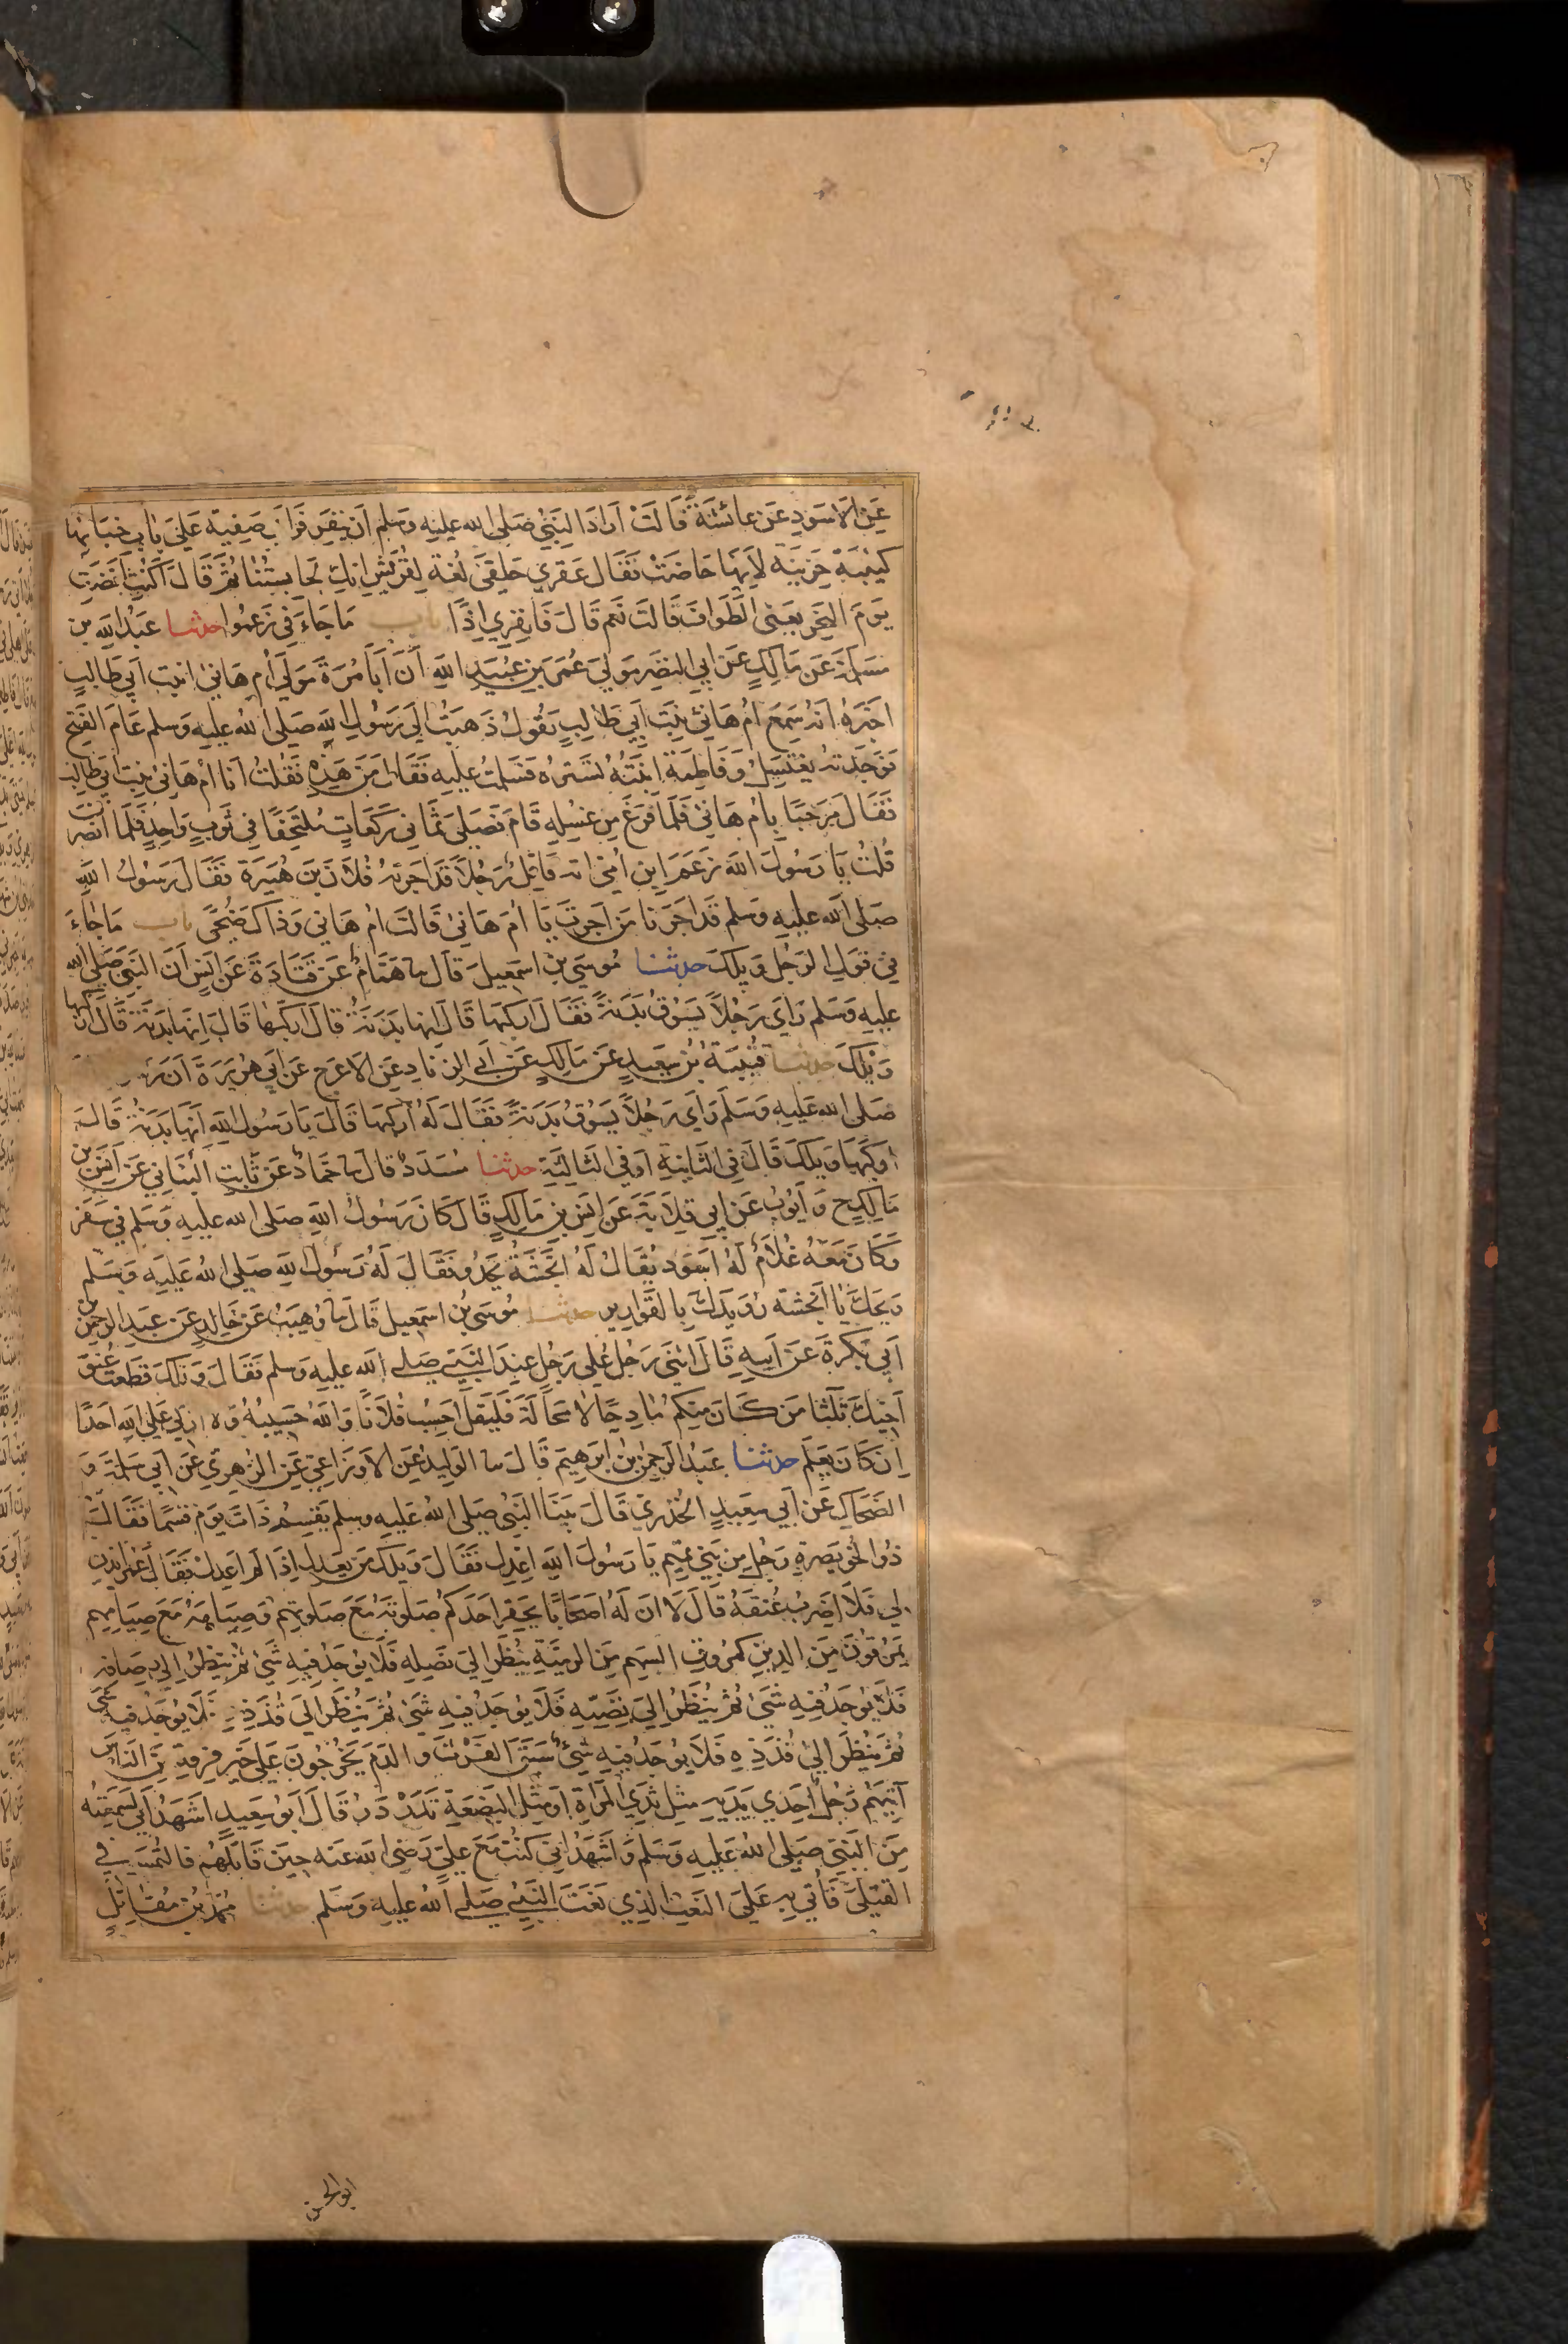 عَنِ الاَسْوَدِ عَنْ عائشَةَ قَالَتْ اَرَادَ النَّبِيُّ صَلى الله عليه وسلم اَنْ يَنْفِرَ فَرَاَى صَفِيَّة عَلَى بَابِ خِبَائِهَا
كَئِيبَةً حَزِينَةً لاَنَّهَا حَاضَتْ فَقَال عَقرَى حَلقَى لُغَة لِقُرَيشٍ اِنَّكِ لَحَابِسَتُنَا ثُمَّ قَالَ اَكُنْتِ اَفَضْتِ
يَومَ النَّحْرِ يَعنى الطَّوَافَ قَالَت نَعَم قَالَ فَانفِرِي اِذًا باب مَا جَاءَ فِي زَعَمُوا حدثنا عَبدُ الله بن
مَسْلَمَةَ عَن مَالِكٍ عَن اَبِي النَّضرِ مَولَى عُمَرَ بنِ عُبَيدِ اللهِ اَنَّ اَبَا مُرَّةَ مَولَى اُم هَانئ ابنت اَبِي طَالِبٍ
اَخبَرَهُ اَنَّهُ سَمِعَ اُم هَانئ بِنتَ اَبِي طَالِبٍ تَقُولُ ذَهَبتُ اِلَى رَسُولِ اللهِ صَلى اللهُ عليهِ وَسلم عَامَ الفَتحِ
فَوَجَدتهُ يَغتَسِلُ وَفَاطِمَةُ ابنَتُهُ تَستُرُه فَسَلمتُ عليهِ فَقَال مَن هَذِهِ فَقُلتُ اَنَا اُم هَانئ بِنت اَبي طالِب
فَقَالَ مَرحَبًا بِاُم هَانئ فَلَمَّا فَرَغَ مِن غسلِهِ قَامَ فَصَلى ثَمَانِي رَكَعَاتٍ مُلتَحِفًا فِي ثَوبٍ وَاحِدٍ فَلَمَّا انصَرَفَ
قُلتُ يَا رَسُولَ الله زَعَمَ ابن اُمى انه قَاتِلٌ رَجُلًا قَد اَجَرتهُ فُلَان بنَ هُبَيرَة فَقَالَ رَسُولُ اللهِ
صَلى الله عليهِ وسَلم قَد اَجَرنَا مَن اَجَرتِ يَا اُمَّ هَانئ قَالَت اُم هَانئ وَذاكَ ضُحًى باب مَا جَاءَ
فِي قَولِ الرَّجُلِ وَيلَكَ حدثنا مُوسَى بن اسمَعِيلَ قالَ نا هَمَّامٌ عَن قَتَادَةَ عَن اَنَسٍ اَنَّ النَّبِيَّ صَلى الله
عليهِ وَسَلم رَاَى رَجُلًا يَسُوقُ بَدَنَةً فَقَالَ اركبهَا قَالَ اِنها بَدَنَةٌ قَالَ اركَبهَا قَالَ اِنَّها بَدَنَةٌ قَالَ اركَبهَا
وَيلَكَ حدثنا قُتَيبَةُ بنُ سَعِيدٍ عَن مَالِكٍ عَن اَبِي الزِّنَادِ عَنِ الاَعرَجِ عَن اَبي هُرَيرَةَ اَنَّ
صَلى الله عَليهِ وَسَلم رَاَى رَجُلًا يَسُوقُ بَدَنَةً فَقَالَ لَهُ اركَبهَا قَالَ يَا رَسُولَ اللهِ اِنَّهَا بَدَنَةٌ قَالَ
اركَبهَا وَيلَكَ قَالَ فِي الثَّانِيَةِ اَو فِي الثَّالِثَةِ حدثنا مُسَدَّدٌ قَالَ نا حَمَّادٌ عَن ثَابِتٍ البُنَانِي عَن اَنَسِ بنِ
مَالِكٍ ح وَاَيُّوبَ عَن اَبِي قِلَابَةَ عَن اَنَسِ بنِ مَالِكٍ قَالَ كَانَ رَسُولُ اللهِ صَلى الله عليهِ وَسَلم في سَفَر
وَكَانَ مَعَهُ غُلَامٌ لَهُ اَسوَد يُقَالُ لَهُ اَنجَشَةُ يَحدُو فَقَالَ لَهُ رَسُولُ الله صَلى اللهُ عَلَيهِ وَسَلم
وَيحَكَ يَا اَنجَشَة رُوَيدَكَ بِالقَوارِيرِ حدثنا مُوسَى بنُ اسمَعِيل قَالَ نا وُهَيبٌ عَن خَالِدٍ عَن عَبدِ الرحمن بن
اَبِي بَكرَةَ عَن اَبِيهِ قَالَ اَثنَى رَجُلٌ عَلى رَجُلٍ عِندَ النَّبِيّ صَلى الله عليهِ وسَلم فَقَالَ وَيلَكَ قَطَعتَ عُنُقَ
اَخِيكَ ثَلَاثًا مَن كَانَ مِنكُم مَادِحًا لَا مَحَالَةَ فَليَقُل اَحسِبُ فُلَانًا وَاللهُ حَسِيبُهُ وَلا اُزَكِّي عَلَى اللهِ اَحَدًا
اِن كَانَ يَعلَم حدثنا عَبدُ الرحمن بنُ ابرَهِيمَ قَالَ نا الوَلِيدُ عَنِ الاَوزَاعِيِّ عَنِ الزُّهرِي عَن اَبِي سَلَمَةَ وَ
الضَّحَّاكِ عَن اَبِي سَعِيدٍ الخُدرِيّ قَالَ بَينَا النَّبِيُّ صَلى اللهُ عَليهِ وسلم يَقسِمُ ذَاتَ يَومٍ قِسمًا فَقَالَ
ذُو الخُوَيصِرَةِ رَجُلٌ مِن بَنِي تَمِيم يَا رَسُولَ اللهِ اعدِل فَقَالَ وَيلَكَ مَن يَعدِل اِذَا لَم اَعدِل فَقَالَ عُمَرُ ايذَن
لي فَلَاَضرِب عُنُقَهُ قَالَ لَا اِنَّ لَهُ اَصحَابًا يَحقِرُ اَحَدكُم صَلَوتَهُ مَعَ صَلَوتِهِم وَصِيَامَهُ مَعَ صِيَامِهِم
يَمرُقُونَ مِنَ الدِّينِ كَمُرُوقِ السَّهمِ مِنَ الرمِيَّةِ يُنظَرُ اِلَى نَصلِهِ فَلَا يُوجَدُ فِيهِ شَىءٌ ثُمَّ يُنظَرُ اِلَى رِصَافِه
فَلَا يُوجَدُ فِيهِ شَىءٌ ثُمَّ يُنظَرُ اِلَى نَضِيِّهِ فَلَا يُوجَدُ فِيهِ شَىءٌ ثُمَّ يُنظَرُ اِلَى قُذَذِهِ فَلَا يُوجَدُ فِيهِ شَىءٌ
ثُمَّ يُنظَرُ اِلَى قُذَذِهِ فَلَا يُوجَدُ فِيهِ شَىءٌ سَبَقَ الفَرثَ وَالدَّمَ يَخرُجُونَ عَلَى خَيرِ فِرقَةٍ مِنَ النَّاسِ
آيَتُهُم رَجُلٌ اِحدَى يَدَيهِ مِثل ثَديِ المَراَةِ اَو مِثلُ البَضعَةِ تَدَردَرُ قَالَ اَبُو سَعِيدٍ اَشهَدُ اَنِّي لَسَمِعتُهُ
مِنَ النَّبِيِّ صَلى اللهُ عَليهِ وَسَلم وَاَشهَدُ اَنِّي كُنتُ مَعَ عَليّ رَضى الله عَنه حِينَ قَاتَلَهُم فَالتُمِسَ فِي
القَتلَى فَاُتِيَ بِهِ عَلَى النَّعتِ الَّذِي نَعَتَ النَّبيُّ صَلى اللهُ عليهِ وَسَلم حدثنا مُحمَّدُ بنُ مُقَاتِلٍ
ابو الحسن